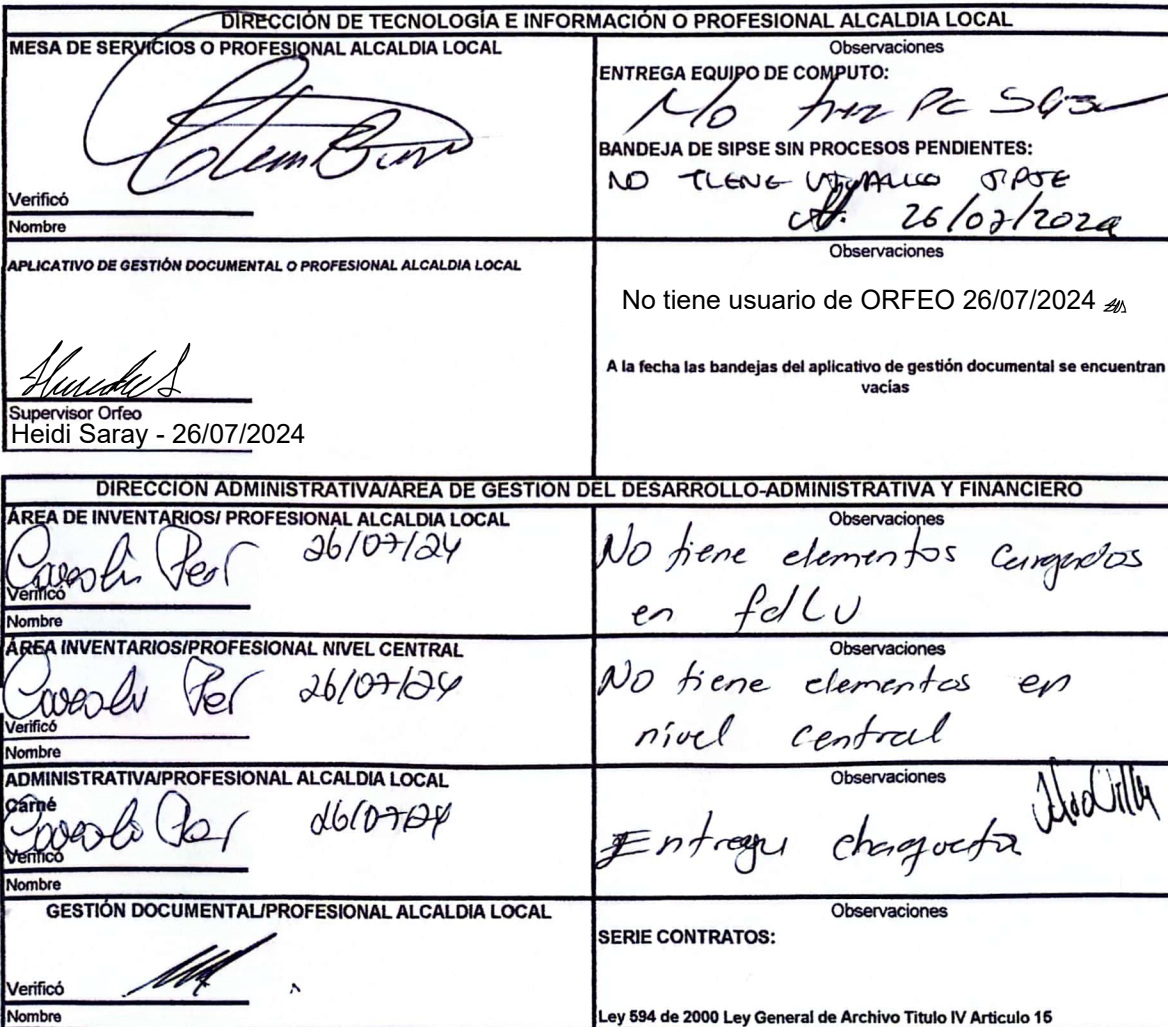 DIRECCIÓN DE TECNOLOGÍA E INFORMACIÓN O PROFESIONAL ALCALDIA LOCAL
MESA DE SERVICIOS O PROFESIONAL ALCALDIA LOCAL
Verificó
Nombre
Observaciones
ENTREGA EQUIPO DE COMPUTO:
No PC
BANDEJA DE SIPSE SIN PROCESOS PENDIENTES:
NO TIENE SIPSE
26/07/2024
APLICATIVO DE GESTIÓN DOCUMENTAL O PROFESIONAL ALCALDIA LOCAL
Supervisor Orfeo
Heidi Saray - 26/07/2024
Observaciones
No tiene usuario de ORFEO 26/07/2024
A la fecha las bandejas del aplicativo de gestión documental se encuentran
vacías
DIRECCION ADMINISTRATIVA/ÁREA DE GESTIÓN DEL DESARROLLO-ADMINISTRATIVA Y FINANCIERO
ÁREA DE INVENTARIOS/ PROFESIONAL ALCALDIA LOCAL
26/07/24
Verificó
Nombre
Observaciones
No tiene elementos cargados
en fdLU
ÁREA INVENTARIOS/PROFESIONAL NIVEL CENTRAL
26/07/24
Verificó
Nombre
Observaciones
No tiene elementos en
nivel central
ADMINISTRATIVA/PROFESIONAL ALCALDIA LOCAL
Carné
26/07/24
Verificó
Nombre
Observaciones
Entregu chaqueta
GESTIÓN DOCUMENTAL/PROFESIONAL ALCALDIA LOCAL
Verificó
Nombre
Observaciones
SERIE CONTRATOS:
Ley 594 de 2000 Ley General de Archivo Titulo IV Articulo 15